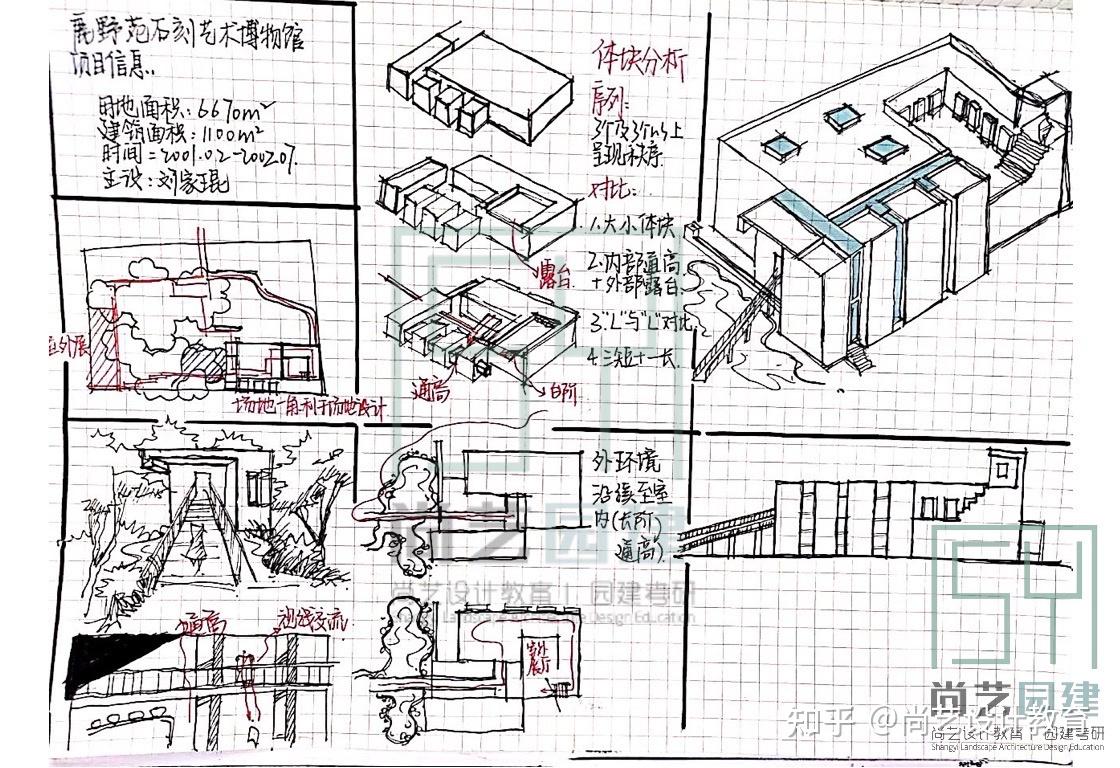 鹿野苑石刻艺术博物馆
项目信息.
用地面积:6670m²
建筑面积:1100m²
时间=2001.02-2002.07.
主设:刘家琨
体块分析
序列:
3个及3个以上
呈现秩序.
对比:
1.大小体块
2.内部通高
+外部露台.
3."L"与"L"对比
4.三短+一长.
露台
通高
台阶
室外展
场地一角利于场地设计
外环境
沿续至室
内(长阶
通高)
通高
视线交流
室外
展厅
尚艺园建
尚艺设计教育 | 园建考研
Shangyi Landscape Architecture Design Education
SY
尚艺园建
知乎 @尚艺设计教育
尚艺设计教育 | 园建考研
Shangyi Landscape Architecture Design Education